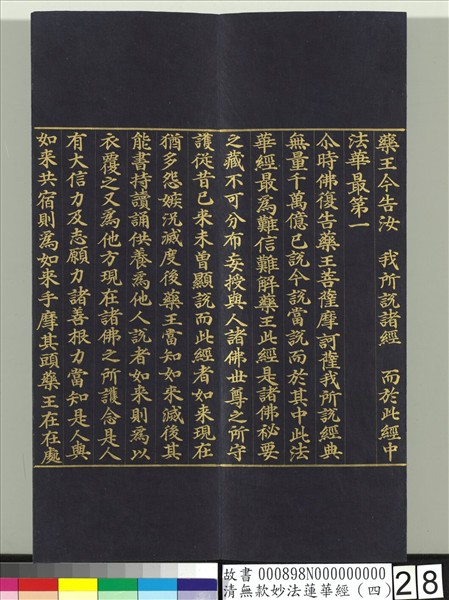 藥王今告汝　我所說諸經　而於此經中
法華最第一
尒時佛復告藥王菩薩摩訶薩我所說經典
無量千萬億已說今說當說而於其中此法
華經最為難信難解藥王此經是諸佛秘要
之藏不可分布妄授與人諸佛世尊之所守
護從昔已來未曾顯說而此經者如來現在
猶多怨嫉況滅度後藥王當知如來滅後其
能書持讀誦供養為他人說者如來則為以
衣覆之又為他方現在諸佛之所護念是人
有大信力及志願力諸善根力當知是人與
如來共宿則為如來手摩其頭藥王在在處
故書 000898N000000000
清無款妙法蓮華經（四）
28